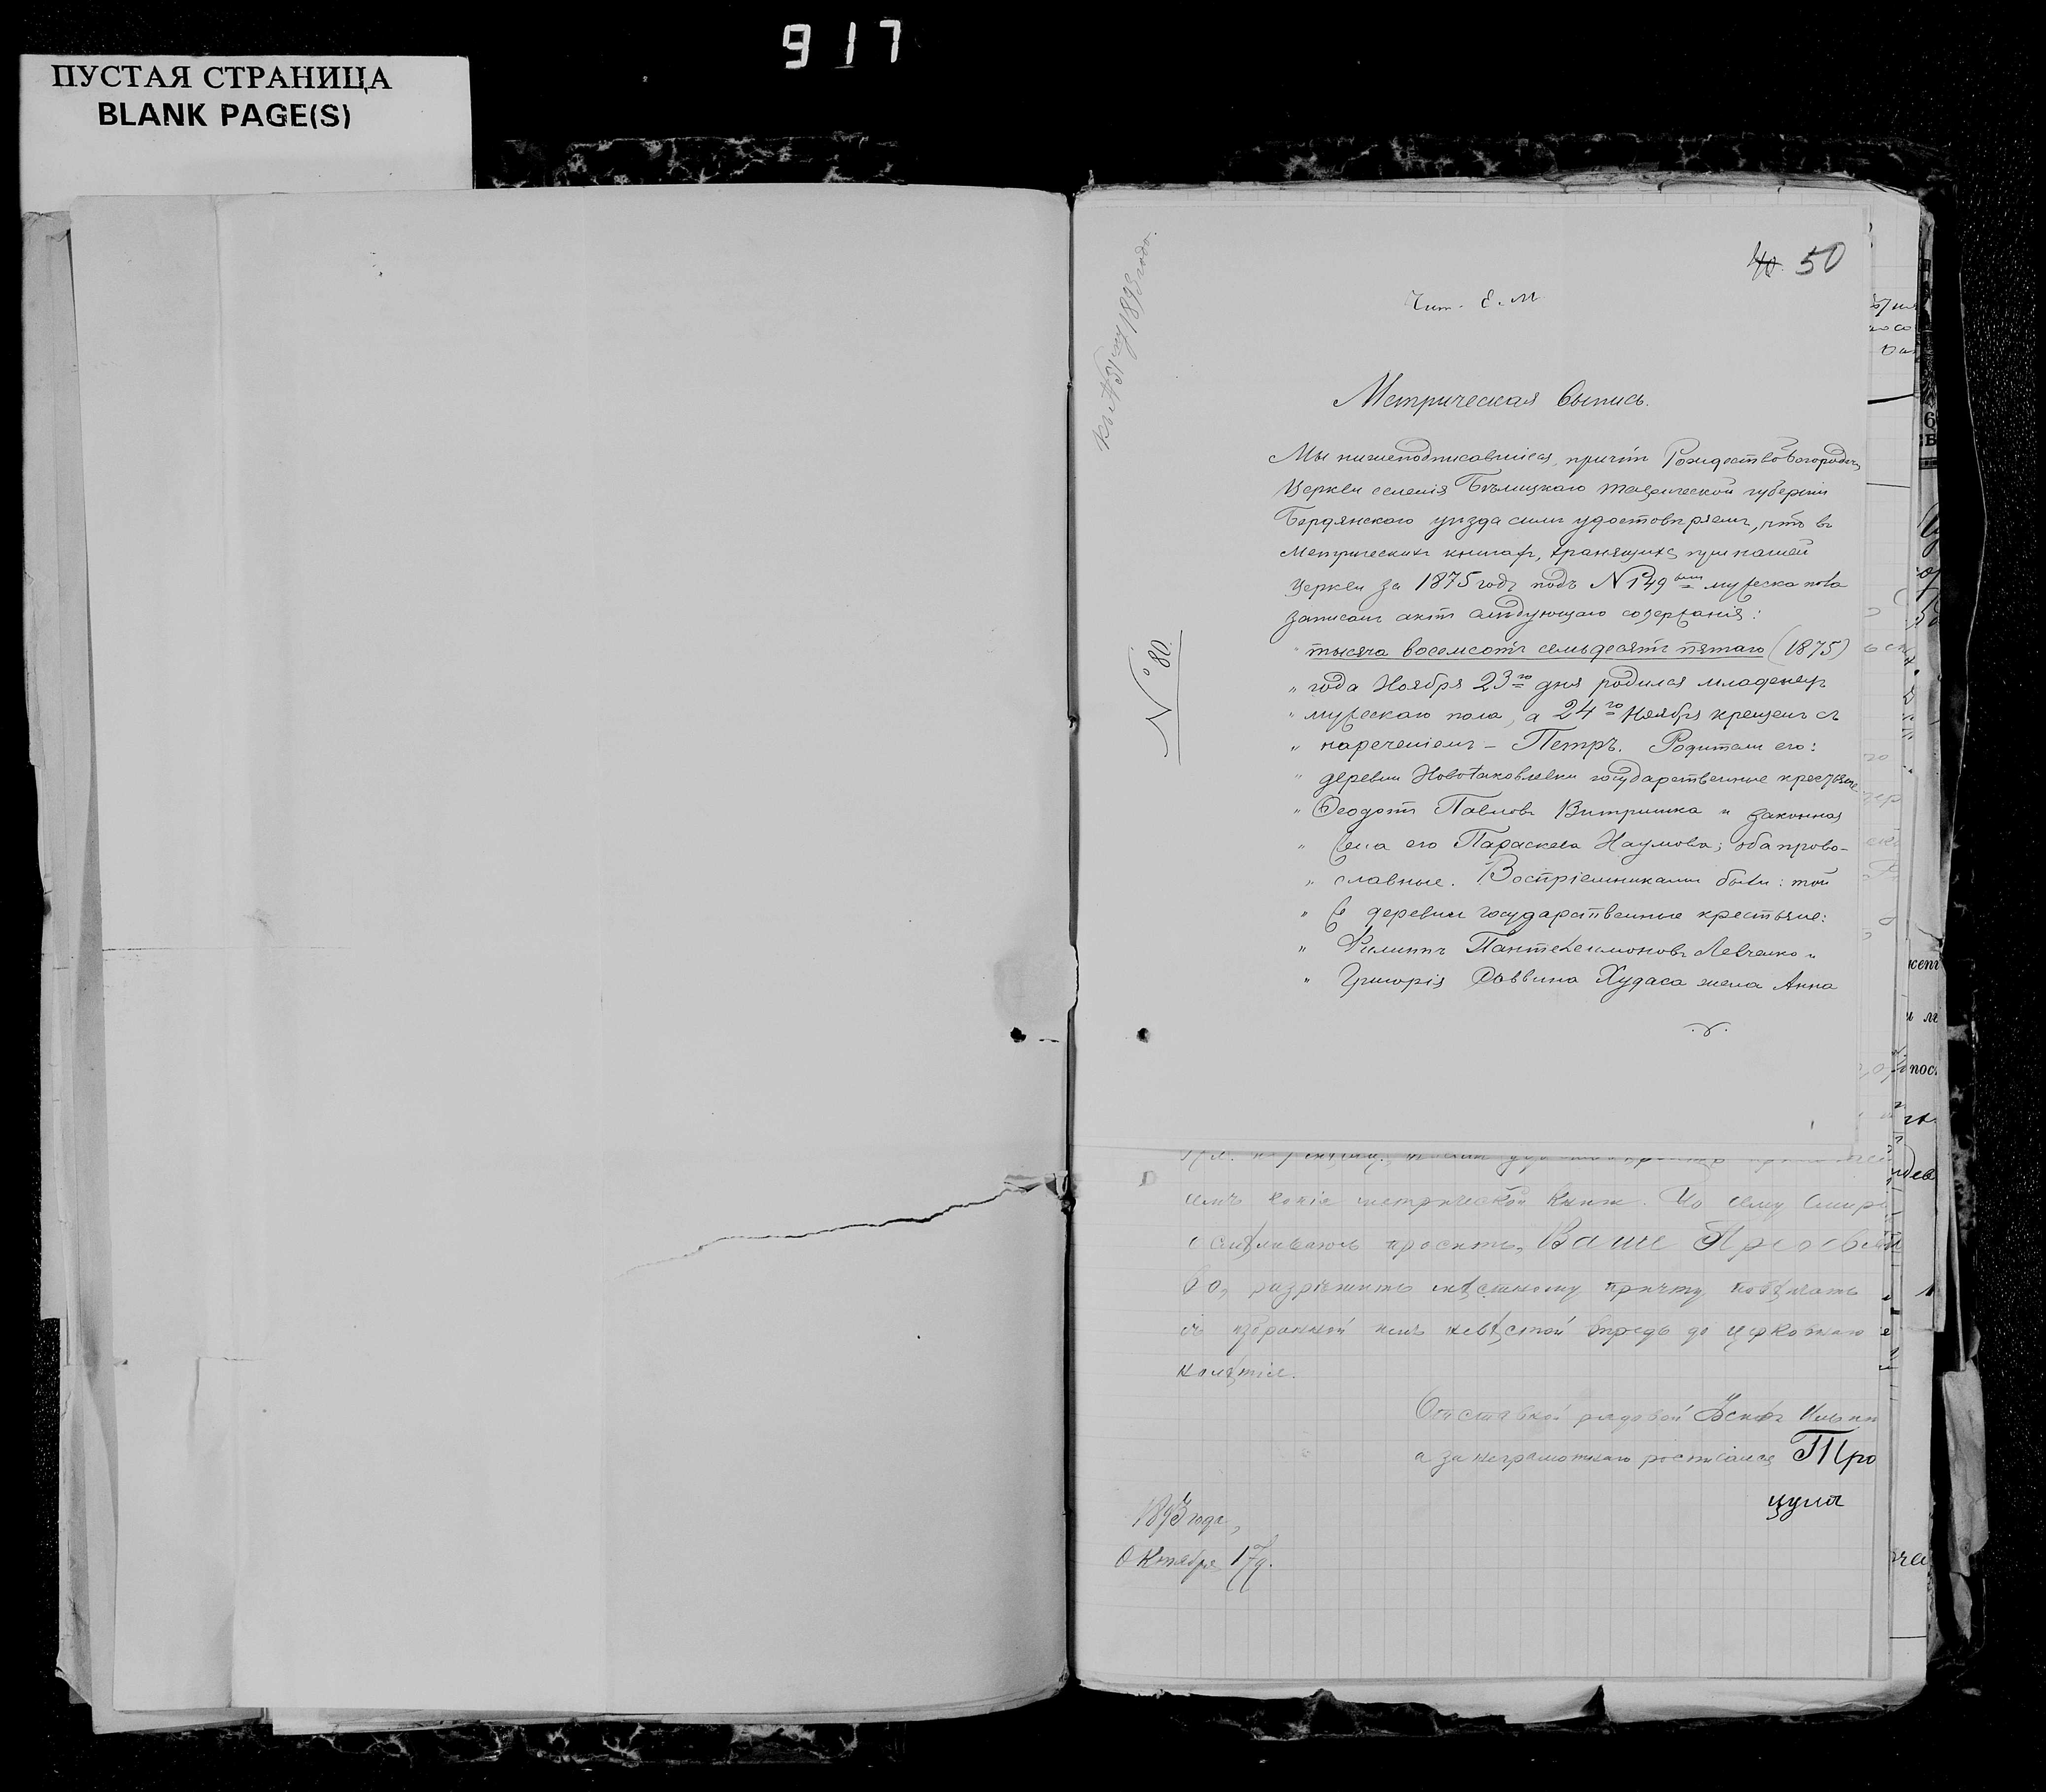 917
ПУСТАЯ СТРАНИЦА
BLANK PAGE(S)
50
Чит. Е. М.
1893 года.
№ 80
Метрическая выпись.
Мы нижеподписавшіеся, причтъ Рождество Богородич.
Церкви селенія Бѣлицкаго Таврической губерніи
Бердянскаго уѣзда симъ удостовѣряемъ, что въ
метрическихъ книгахъ, хранящихся при нашей
церкви за 1875 годъ подъ № 149 мужеска пола
записанъ актъ слѣдующаго содержанія:
тысяча восемсотъ семьдесятъ пятаго (1875)
„ года Ноября 23го дня родился младенецъ
„ мужескаго пола, а 24го Ноября крещенъ съ
„ нареченіемъ – Петръ. Родители его:
„ деревни НовоЯковлевки государственные крестьяне
„ Ѳеодотъ Павловъ Витришка и законная
„ жена его Параскева Наумова; оба право-
„ славные. Воспріемниками были: той
„ ж деревни государственные крестьяне:
„ Филиппъ Пантелеимоновъ Левченко и
„ Григорія Саввина Худаса жена Анна
емъ копіе метрической книги. По сему
осмѣливаюсь просить, Ваше Преосвящ
во, разрѣшить мѣстному причту повѣнчать
съ избранной имъ невѣстой впредь до церковнаго
колѣтія.
Отставной рядовой
а за неграмотнаго росписался Тро
цула
1893 года,
Октября 17 д.